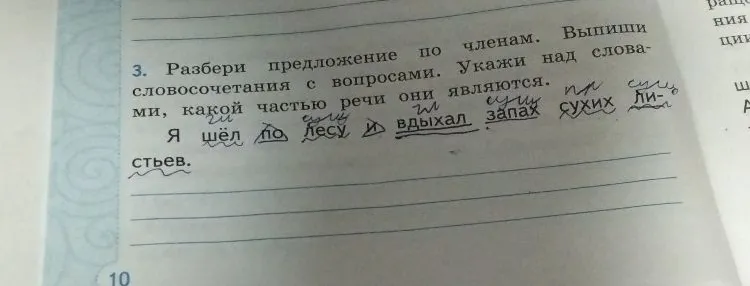 3. Разбери предложение по членам. Выпиши
словосочетания с вопросами. Укажи над слова-
ми, какой частью речи они являются.
гл сущ гл сущ пр сущ
Я шёл по лесу и вдыхал запах сухих ли-
стьев.
10
ния
ции